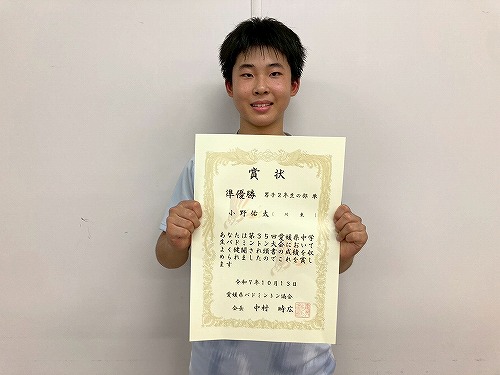 賞状
準優勝 男子2年生の部 単
小野佑太（川東）
あなたは第35回愛媛県中学
生バドミントン大会においで
よく健闘され頭書の成績を収
められましたのでこれを賞し
ます
令和7年10月13日
愛媛県バドミントン協会
会長 中村 時広